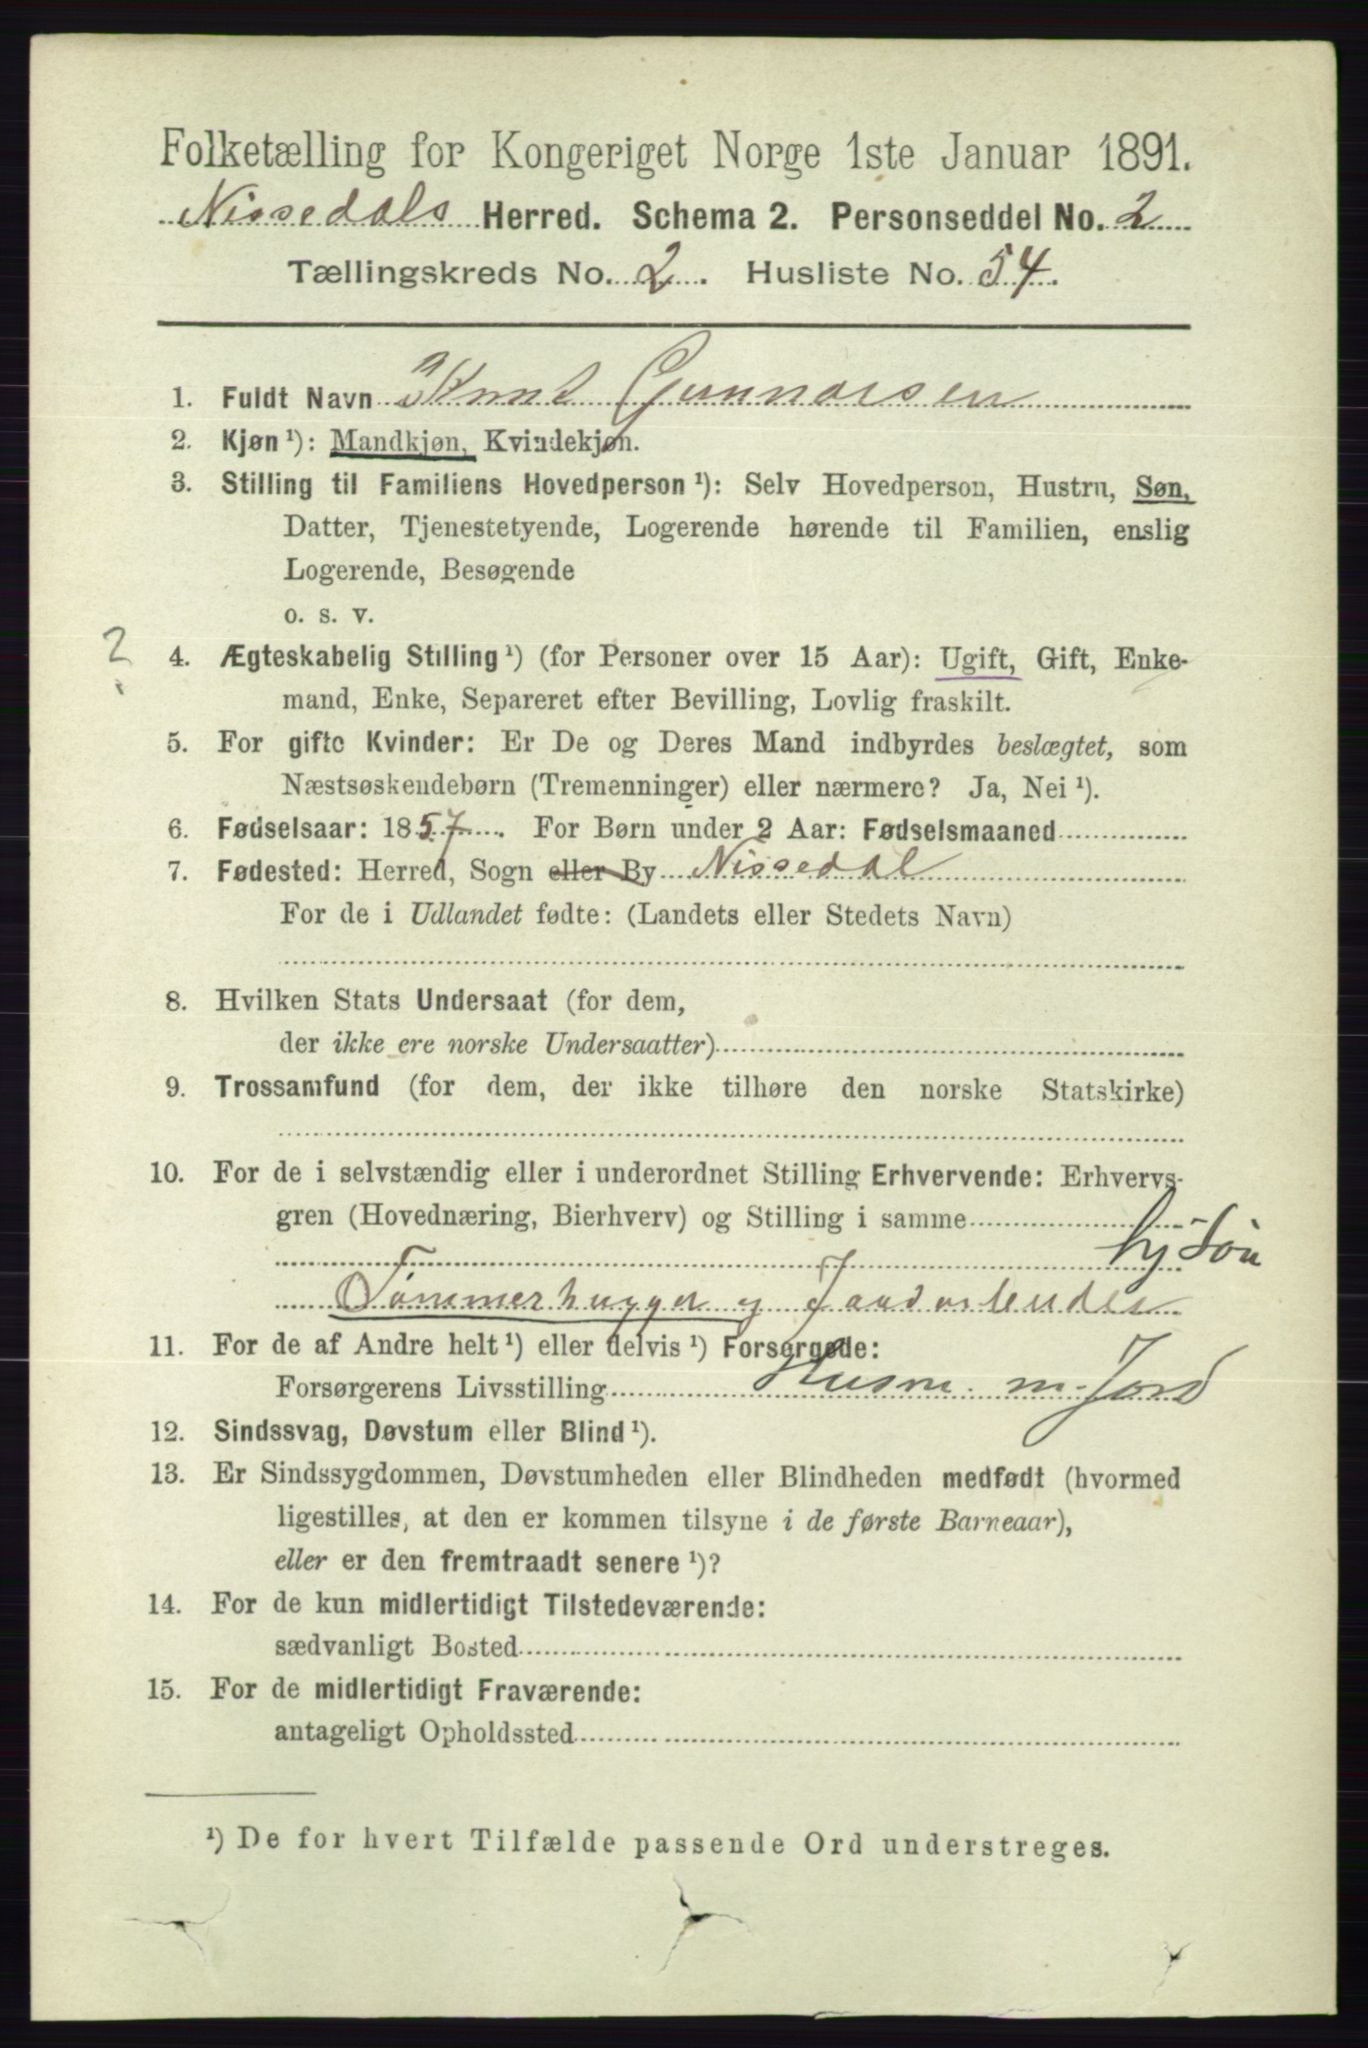 Folketælling for Kongeriget Norge 1ste Januar 1891.
Nissedals Herred. Schema 2. Personseddel No. 2
Tællingskreds No. 2. Husliste No. 54.
1. Fuldt Navn Knud Gunnarsen
2. Kjøn ¹): Mandkjøn, Kvindekjøn.
3. Stilling til Familiens Hovedperson ¹): Selv Hovedperson, Hustru, Søn,
Datter, Tjenestetyende, Logerende hørende til Familien, enslig
Logerende, Besøgende
o. s. v.
?
4. Ægteskabelig Stilling ¹) (for Personer over 15 Aar): Ugift, Gift, Enke-
mand, Enke, Separeret efter Bevilling, Lovlig fraskilt.
5. For gifte Kvinder: Er De og Deres Mand indbyrdes beslægtet, som
Næstsøskendebørn (Tremenninger) eller nærmere? Ja, Nei ¹).
6. Fødselsaar: 1857. For Børn under 2 Aar: Fødselsmaaned
7. Fødested: Herred, Sogn eller By Nissedal
For de i Udlandet fødte: (Landets eller Stedets Navn)
8. Hvilken Stats Undersaat (for dem,
der ikke ere norske Undersaatter)
9. Trossamfund (for dem, der ikke tilhøre den norske Statskirke)
10. For de i selvstændig eller i underordnet Stilling Erhvervende: Erhvervs-
gren (Hovednæring, Bierhverv) og Stilling i samme
Søn
Tømmerhugger og Jordarbeider
11. For de af Andre helt ¹) eller delvis ¹) Forsørgede:
Forsørgerens Livsstilling Husm. m. Jord
12. Sindssvag, Døvstum eller Blind ¹).
13. Er Sindssygdommen, Døvstumheden eller Blindheden medfødt (hvormed
ligestilles, at den er kommen tilsyne i de første Barneaar),
eller er den fremtraadt senere ¹)?
14. For de kun midlertidigt Tilstedeværende:
sædvanligt Bosted
15. For de midlertidigt Fraværende:
antageligt Opholdssted
¹) De for hvert Tilfælde passende Ord understreges.